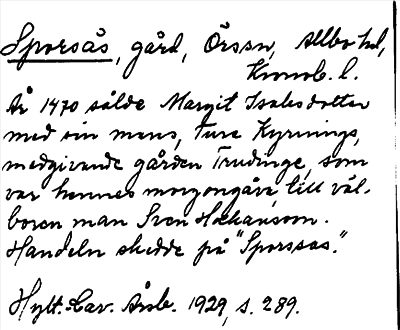 Sporsås, gård, Örssn, Allbo hd,
Kronob. l.
År 1470 sålde Margit Isaksdotter
med sin mans, Ture Kyrnings,
medgivande gården Trudinge, som
var hennes morgongåva, till väl-
boren man Sven Håkansson.
Handeln skedde på "Sporssaas."
Hylt.-Cav. Årsb. 1929, s. 289.